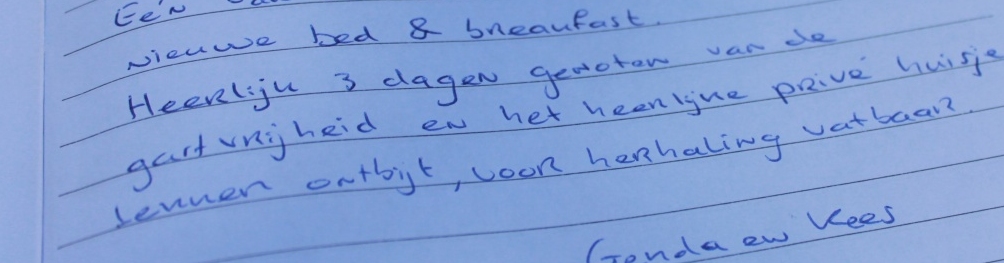 Eén
nieuwe bed & breakfast.
Heerlijk 3 dagen genoten van de
gastvrijheid en het heerlijke privé huisje
lekker ontbijt, voor herhaling vatbaar.
Gonda en Kees